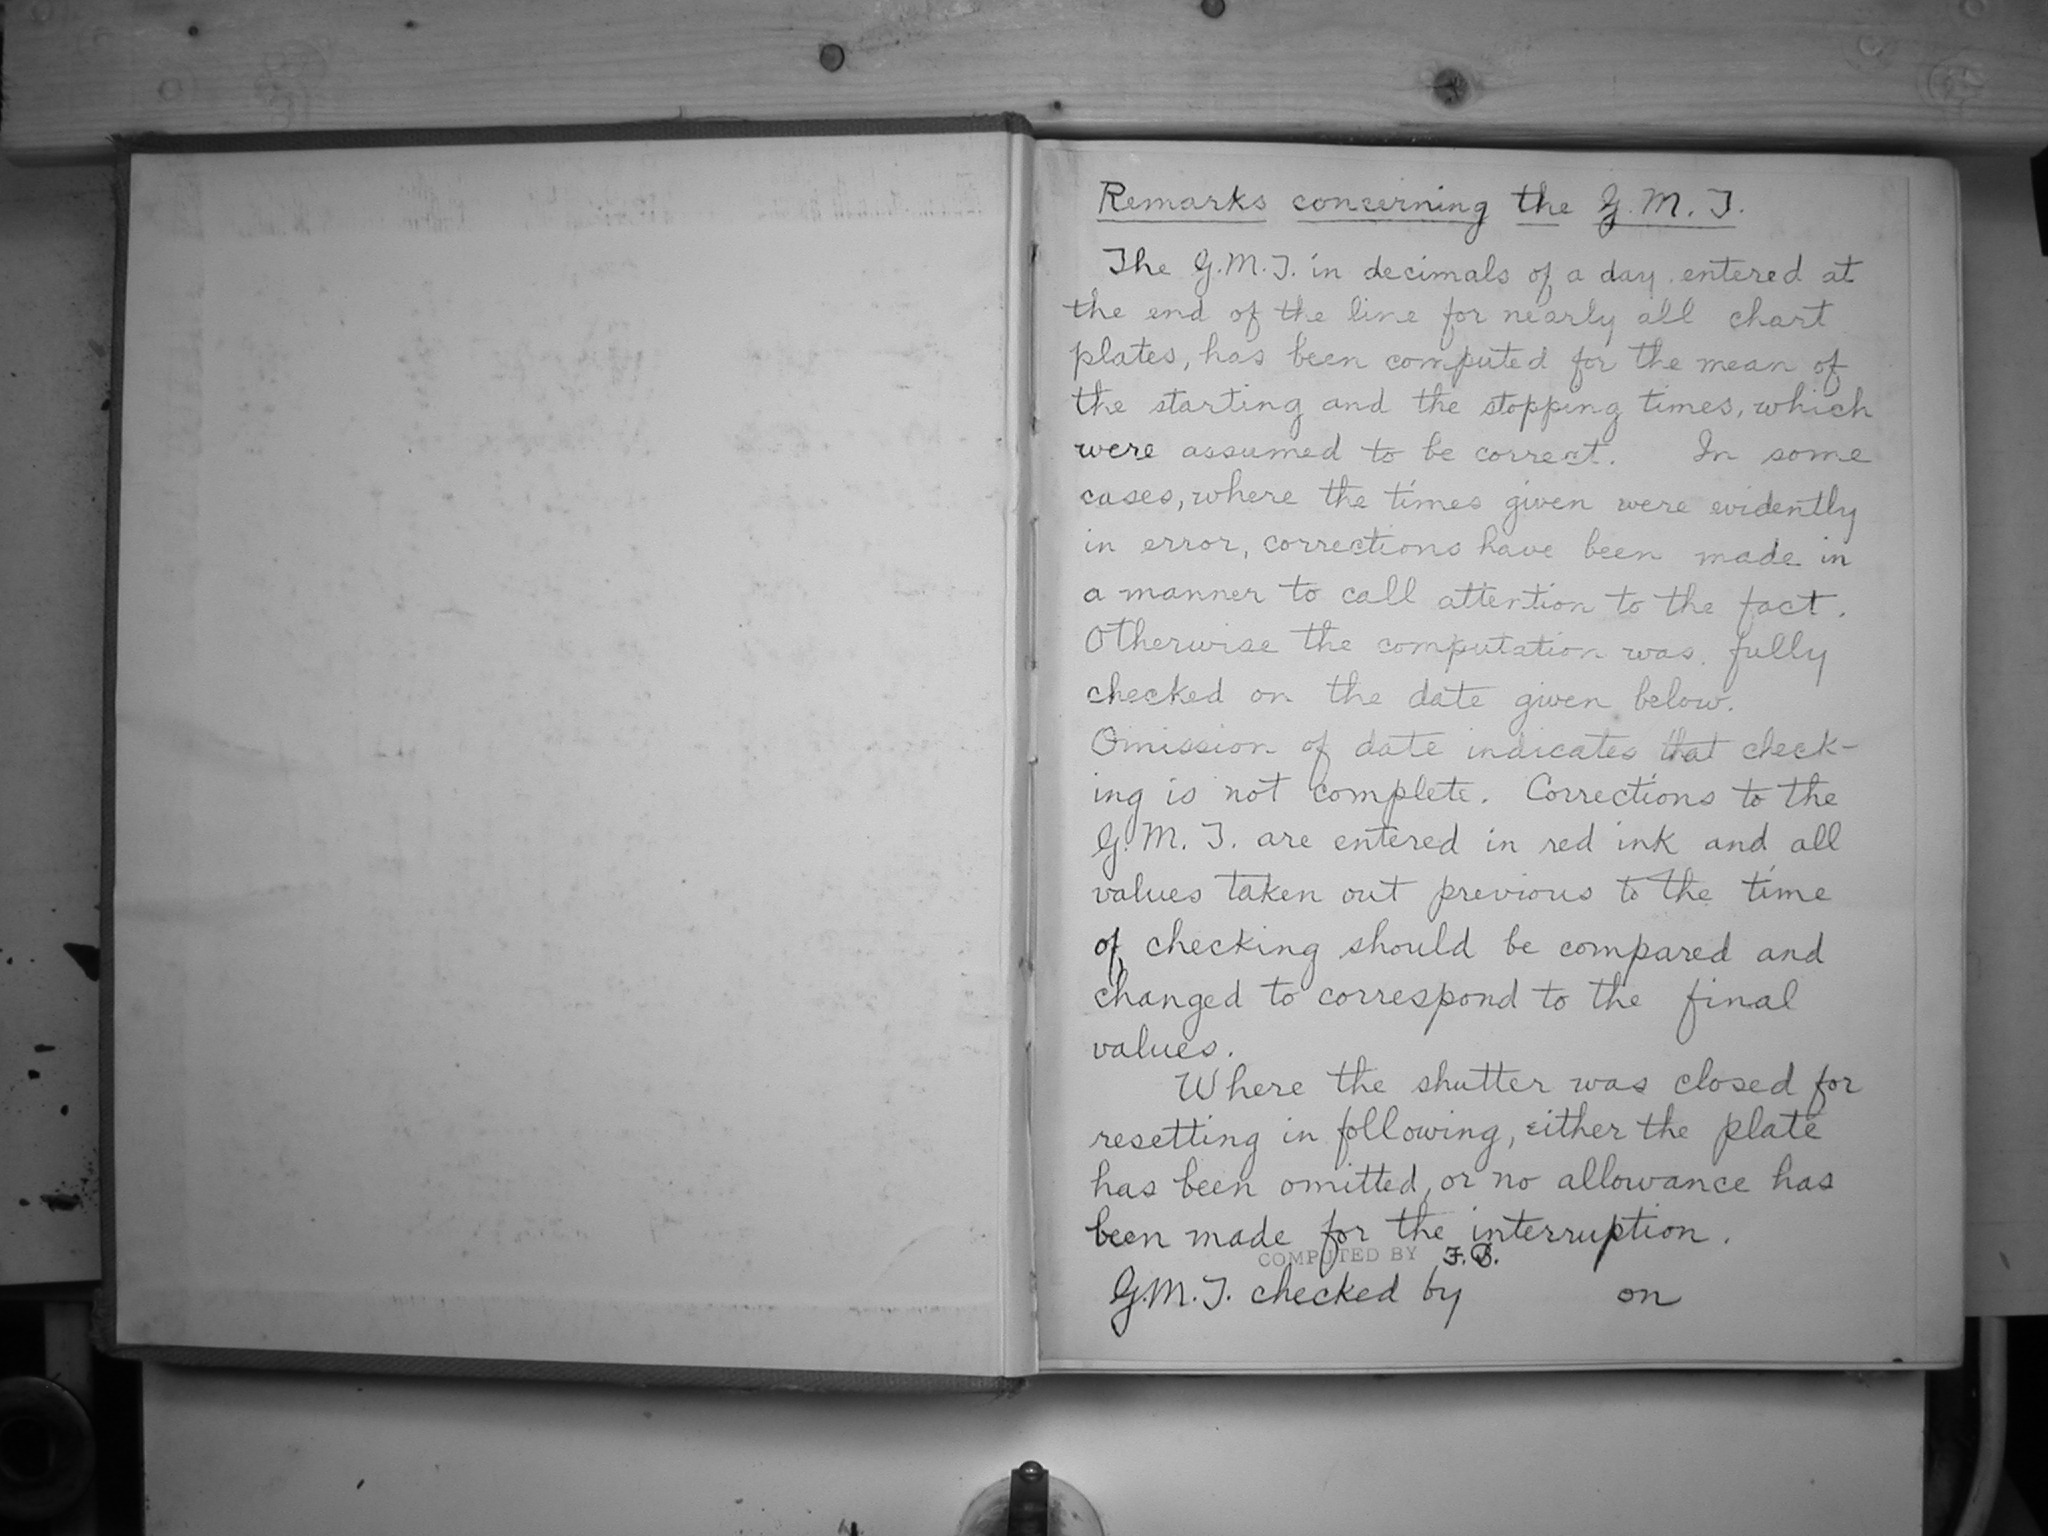 Remarks concerning the G.M.T.
The G.M.T. in decimals of a day entered at
the end of the line for nearly all chart
plates, has been computed for the mean of
the starting and the stopping times, which
were assumed to be correct. In some
cases, where the times given were evidently
in error, corrections have been made in
a manner to call attention to the fact.
Otherwise the computation was fully
checked on the date given below.
Omission of date indicates that check-
ing is not complete. Corrections to the
G.M.T. are entered in red ink and all
values taken out previous to the time
of checking should be compared and
changed to correspond to the final
values.
Where the shutter was closed for
resetting in following, either the plate
has been omitted, or no allowance has
been made for the interruption.
COMPUTED BY F.B.
G.M.T. checked by on